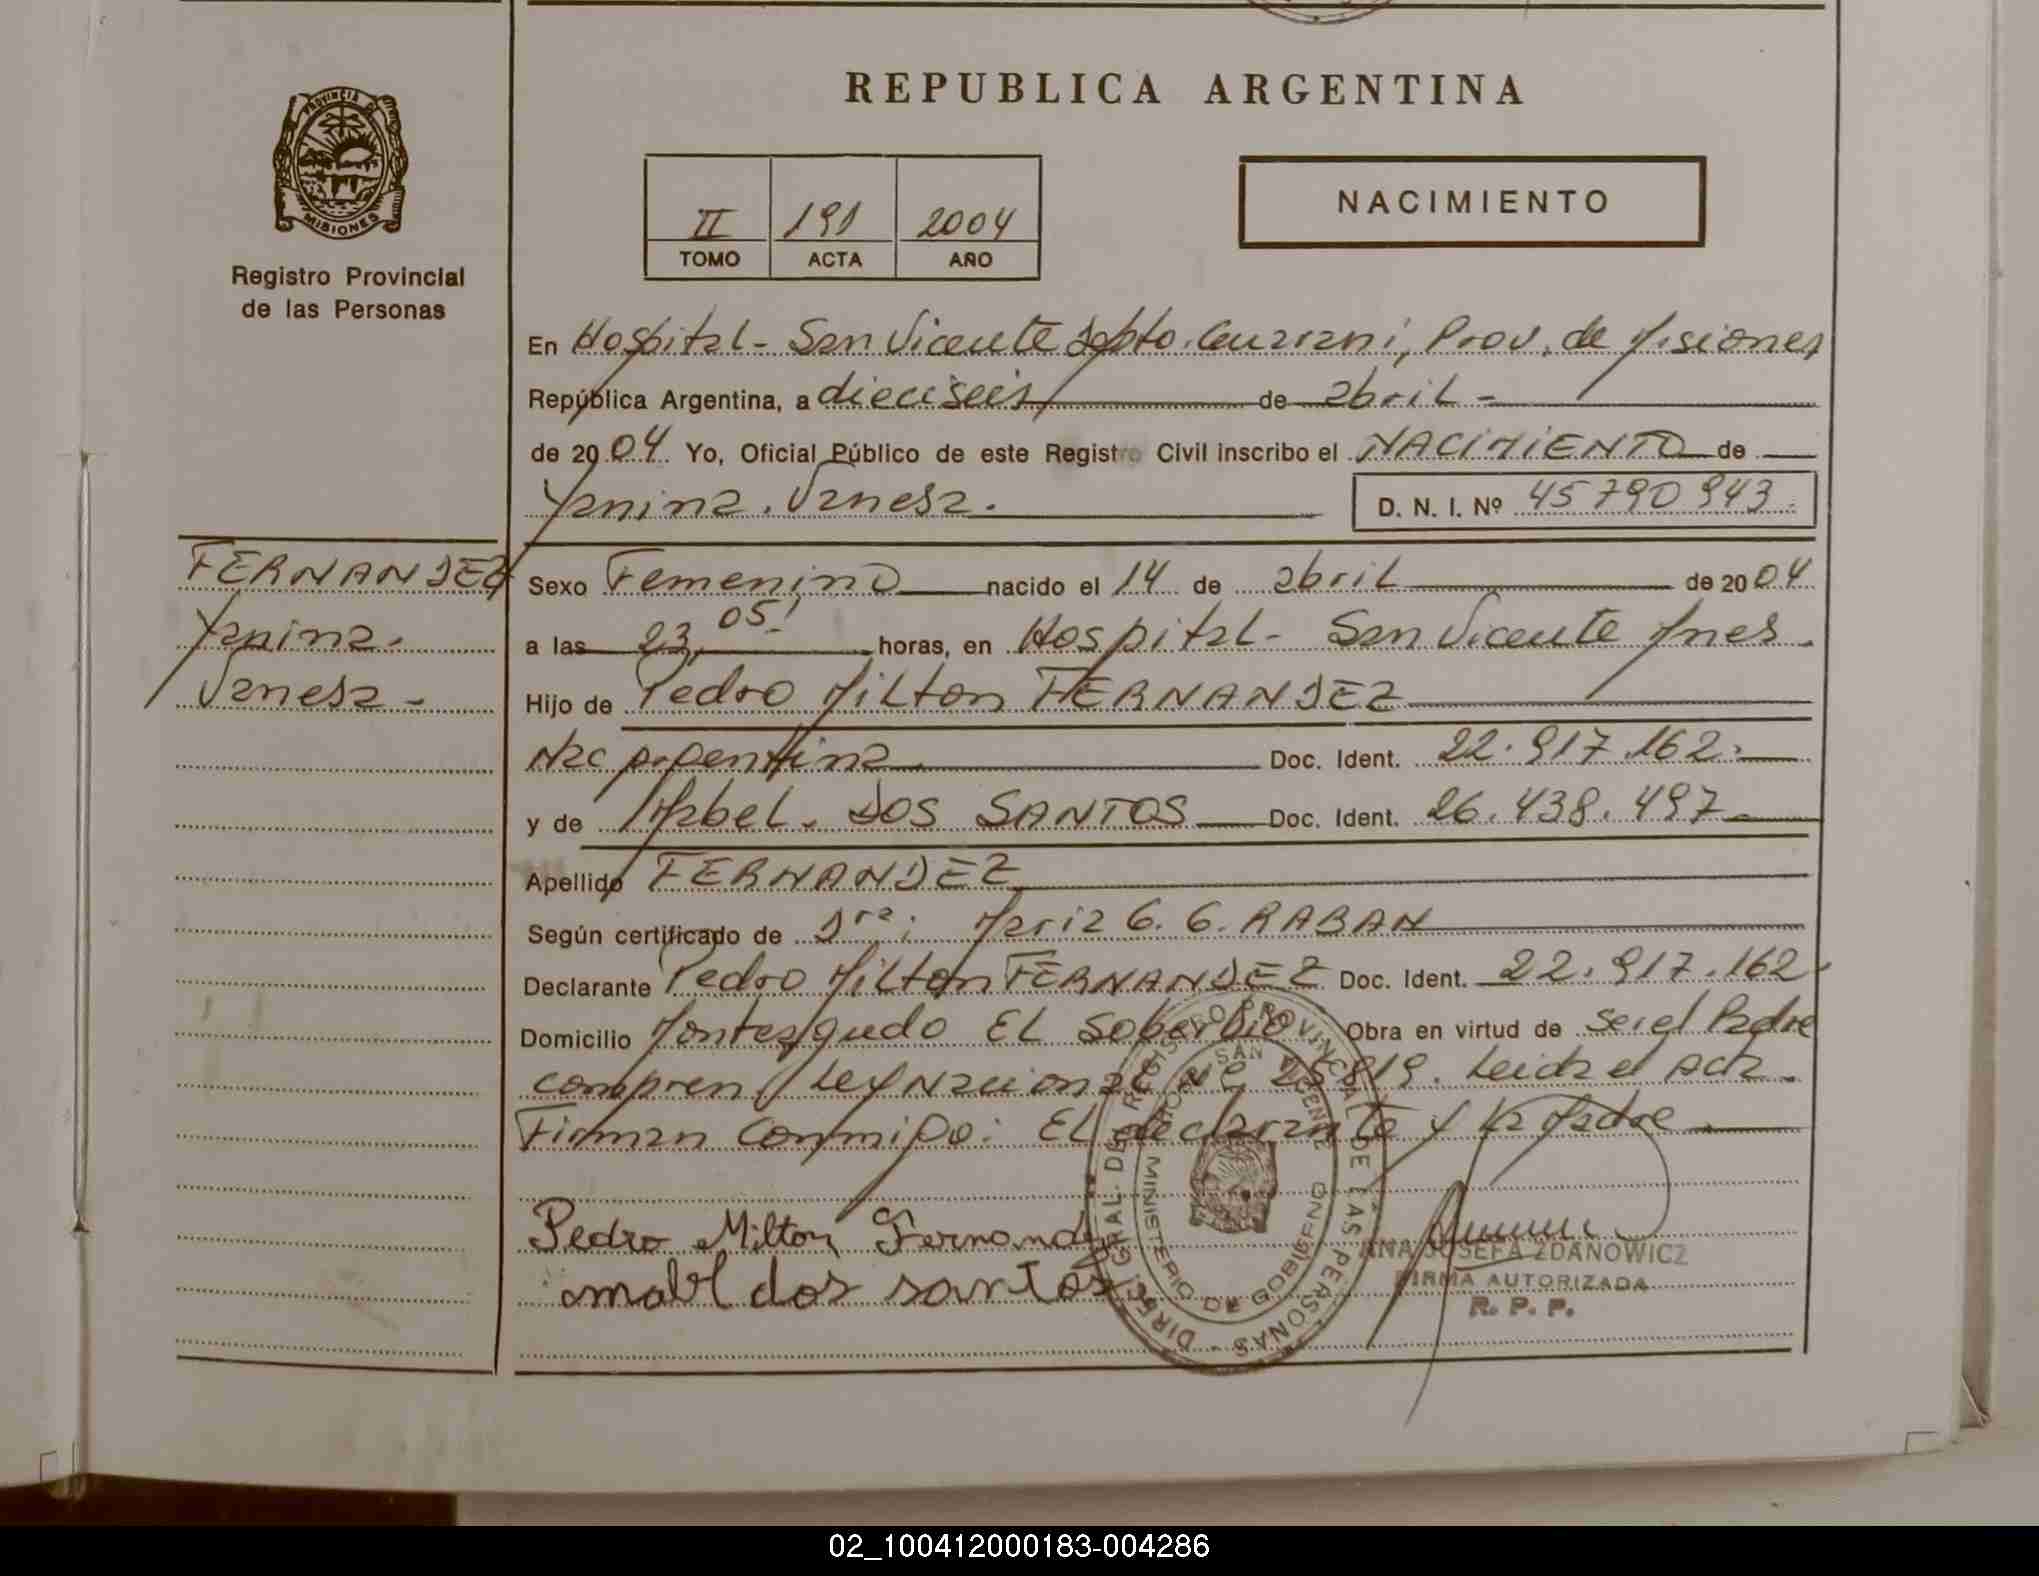 REPUBLICA ARGENTINA
PROVINCIA DE MISIONES
Registro Provincial
de las Personas
II 191 2004
TOMO ACTA AÑO
NACIMIENTO
En Hospital - San Vicente Dpto. Guarani, Prov. de Misiones
República Argentina, a dieciseis de abril -
de 2004 Yo, Oficial Público de este Registro Civil inscribo el NACIMIENTO de
Yanina. Vanesa. D. N. I. Nº 45790943.
FERNANDEZ
Yanina.
Vanesa.
Sexo Femenino nacido el 14 de abril de 2004
a las 23,05' horas, en Hospital - San Vicente Mnes.
Hijo de Pedro Milton FERNANDEZ
Nac Argentina Doc. Ident. 22.917.162.
y de Mabel. DOS SANTOS Doc. Ident. 26.438.497.
Apellido FERNANDEZ
Según certificado de Dra: Maria G. G. RABAN
Declarante Pedro Milton FERNANDEZ Doc. Ident. 22.917.162.
Domicilio Monteagudo El Soberbio Obra en virtud de ser el Padre
compren/ Ley Nacional Nº 25819. Leida el Acta.
Firman Conmigo: El declarante y la Madre
Pedro Milton Fernandez
mabel dos santos
DIREC. GRAL. DEL REGISTRO PROVINCIAL DE LAS PERSONAS
MINISTERIO DE GOBIERNO
SAN VICENTE
ANA JOSEFA ZDANOWICZ
FIRMA AUTORIZADA
R. P. P.
02_100412000183-004286